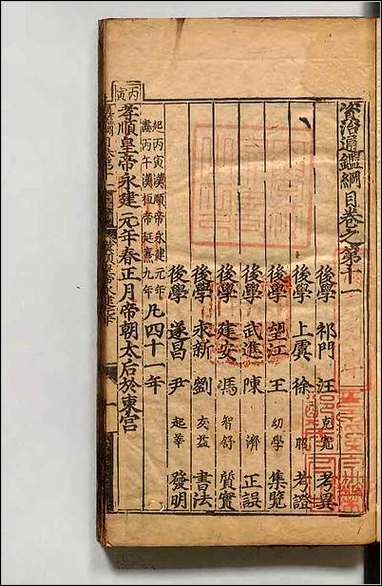 資治通鑑綱目卷之第十一
後學 祁門 汪 克寬 考異
後學 上虞 徐 昭 考證
後學 望江 王 幼學 集覽
後學 武進 陳 濟 正誤
後學 建安 馮 智舒 質實
後學 永新 劉 友益 書法
後學 遂昌 尹 起莘 發明
起丙寅漢順帝永建元年
盡丙午漢桓帝延熹九年
凡四十一年
丙寅
孝順皇帝永建元年春正月帝朝太后於東宮